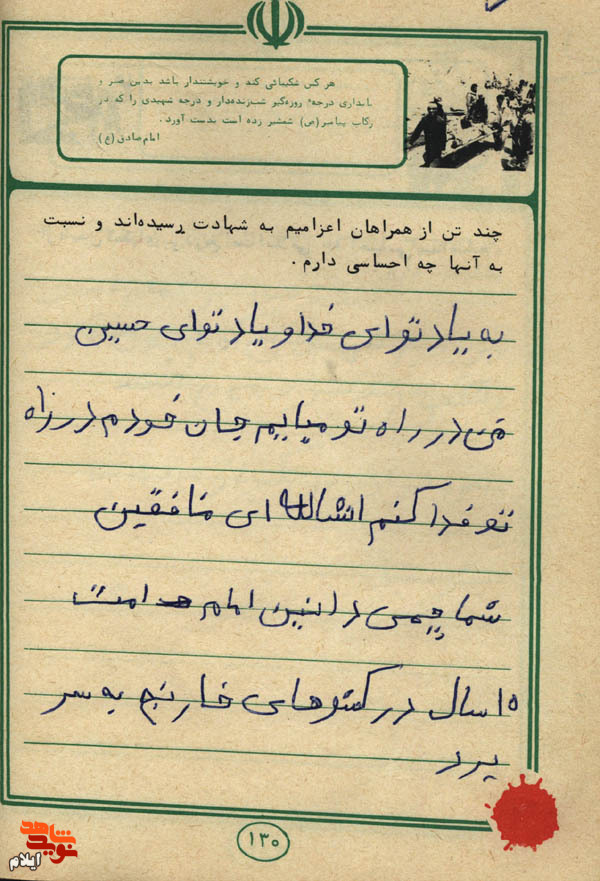 هر کس شکیبائی کند و خویشتندار باشد بدین صبر و
پایداری درجهٔ روزه‌گیر شب‌زنده‌دار و درجه شهیدی را که در
رکاب پیامبر (ص) شمشیر زده است بدست آورد.
امام صادق (ع)
چند تن از همراهان اعزامیم به شهادت رسیده‌اند و نسبت
به آنها چه احساسی دارم.
به یاد تو ای خدا و یاد تو ای حسین
من در راه تو میایم جان خودم در راه
تو فدا کنم انشاالله ای منافقین
شما چمی دانین امام امت
۱۵ سال در کشورهای خارنج به سر
برد
۱۳۰
نوید شاهد
ایلام